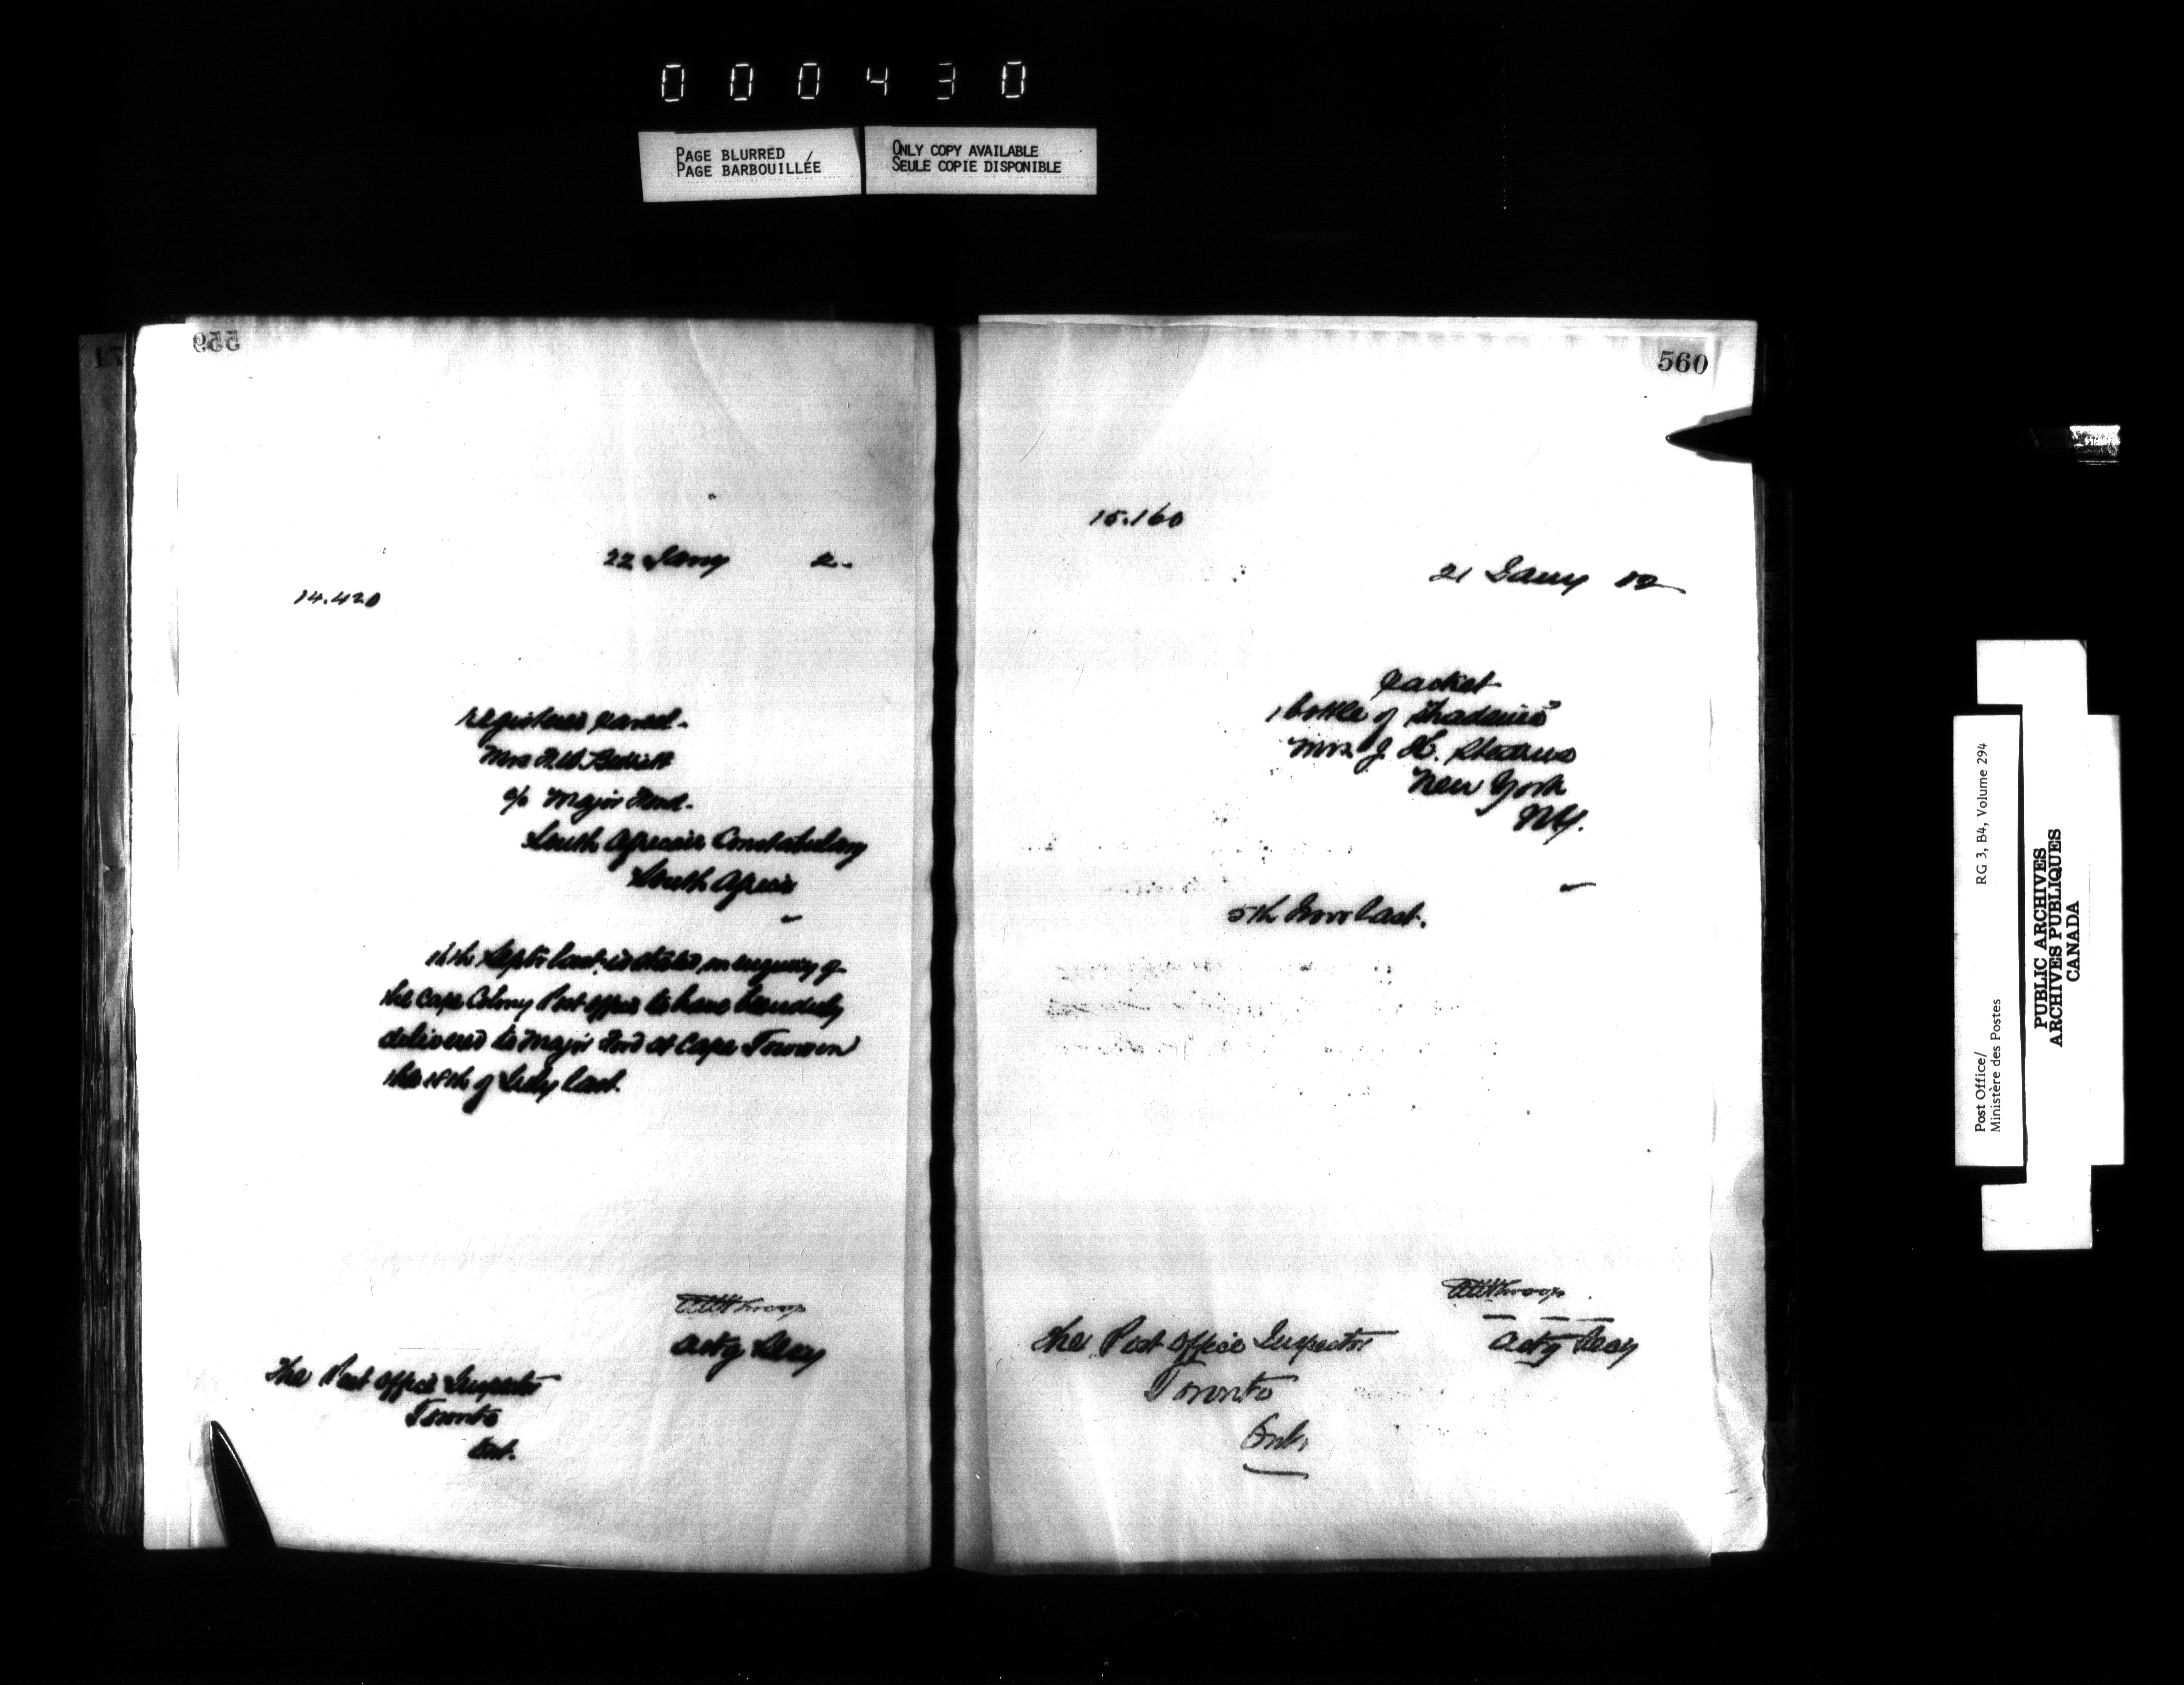 000430
PAGE BLURRED
PAGE BARBOUILLÉE
ONLY COPY AVAILABLE
SEULE COPIE DISPONIBLE
559
22 Jany 2.
14.420
registered parcel.
Mrs
c/o Major
South African Constabulary
South Africa
Septr last is stated, on enquiry of
the Cape Colony Post Office to have been duly
delivered to Major at Cape Town on
the 18th of July last.
Actg Secy
The Post Office Inspector
Toronto
Ont.
560
15.160
21 Jany 02
packet
1 bottle of
Mrs J. H. Stearns
New York
NY.
5th Novr last.
Actg Secy
The Post Office Inspector
Toronto
Ont.
Post Office/
Ministère des Postes
RG 3, B4, Volume 294
PUBLIC ARCHIVES
ARCHIVES PUBLIQUES
CANADA